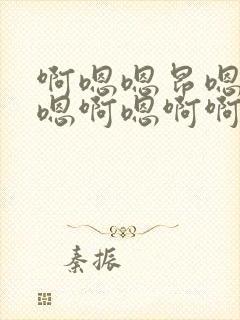 啊嗯嗯昂嗯
嗯啊嗯啊啊
秦振